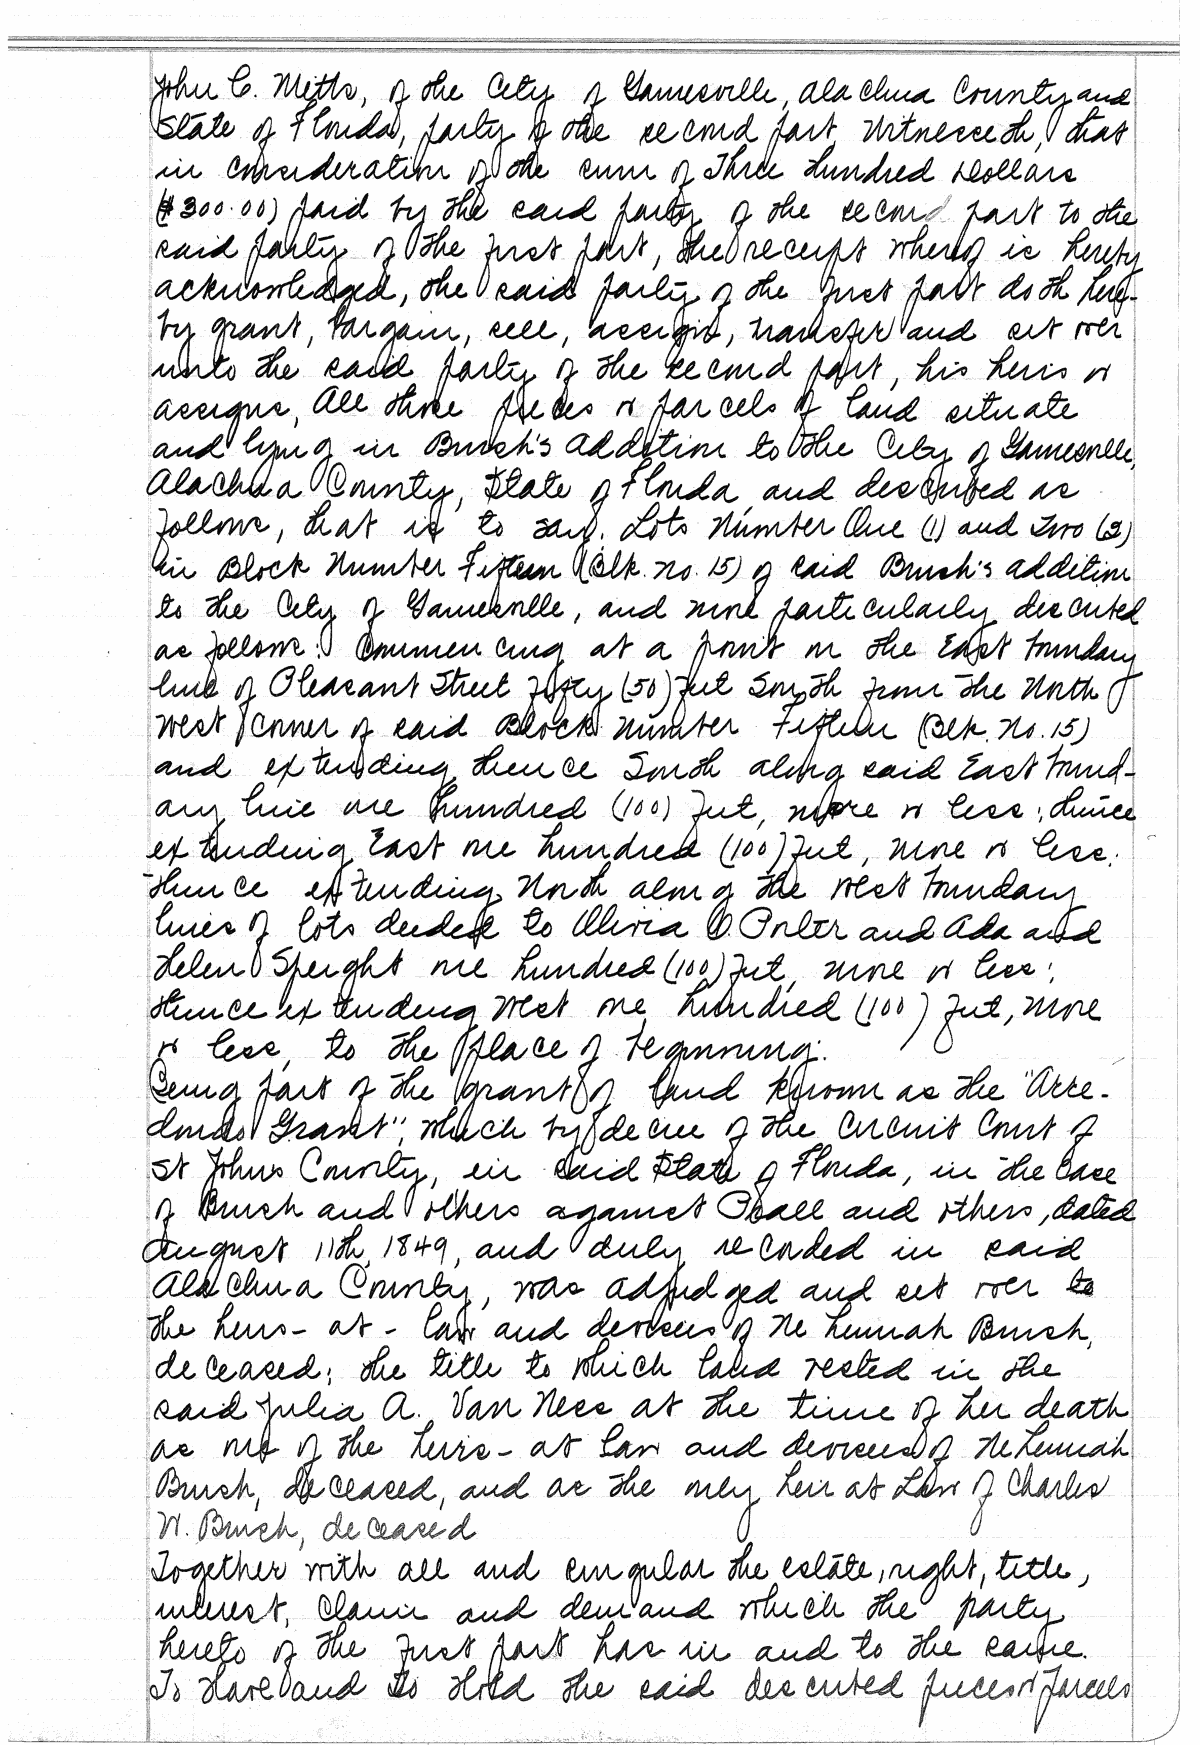 John C. Metts, of the City of Gainesville, Alachua County and
State of Florida, party of the second part Witnesseth, that
in consideration of the sum of Three Hundred Dollars
($300.00) paid by the said party of the second part to the
said party of the first part, the receipt whereof is hereby
acknowledged, the said party of the first part doth here-
by grant, bargain, sell, assign, transfer and set over
unto the said party of the second part, his heirs or
assigns, All those pieces or parcels of land situate
and lying in Brush's addition to the City of Gainesville,
Alachua County, State of Florida, and described as
follows, that is to say: Lots Number One (1) and Two (2)
in Block Number Fifteen (Blk. No. 15) of said Brush's addition
to the City of Gainesville, and more particularly described
as follows: Commencing at a point on the East boundary
line of Pleasant Street fifty (50) feet South from the North
West corner of said Block Number Fifteen (Blk. No. 15)
and extending thence South along said East bound-
ary line one hundred (100) feet, more or less; thence
extending East one hundred (100) feet, more or less;
thence extending North along the west boundary
lines of lots deeded to Olivia V. Porter and Ada and
Helen Speight one hundred (100) feet, more or less;
thence extending West one hundred (100) feet, more
or less, to the place of beginning.
Being part of the grant of land known as the "Arre-
dondo Grant", which by decree of the Circuit Court of
St Johns County, in said State of Florida, in the case
of Brush and others against Pball and others, dated
August 11th, 1849, and duly recorded in said
Alachua County, was adjudged and set over to
the heirs-at-law and devisees of Nehemiah Brush,
deceased; the title to which land vested in the
said Julia A. Van Ness at the time of her death
as one of the heirs-at law and devisees of Nehemiah
Brush, deceased, and as the only heir at Law of Charles
N. Brush, deceased
Together with all and singular the estate, right, title,
interest, claim and demand which the party
hereto of the first part has in and to the same.
To Have and to Hold the said described pieces or parcels